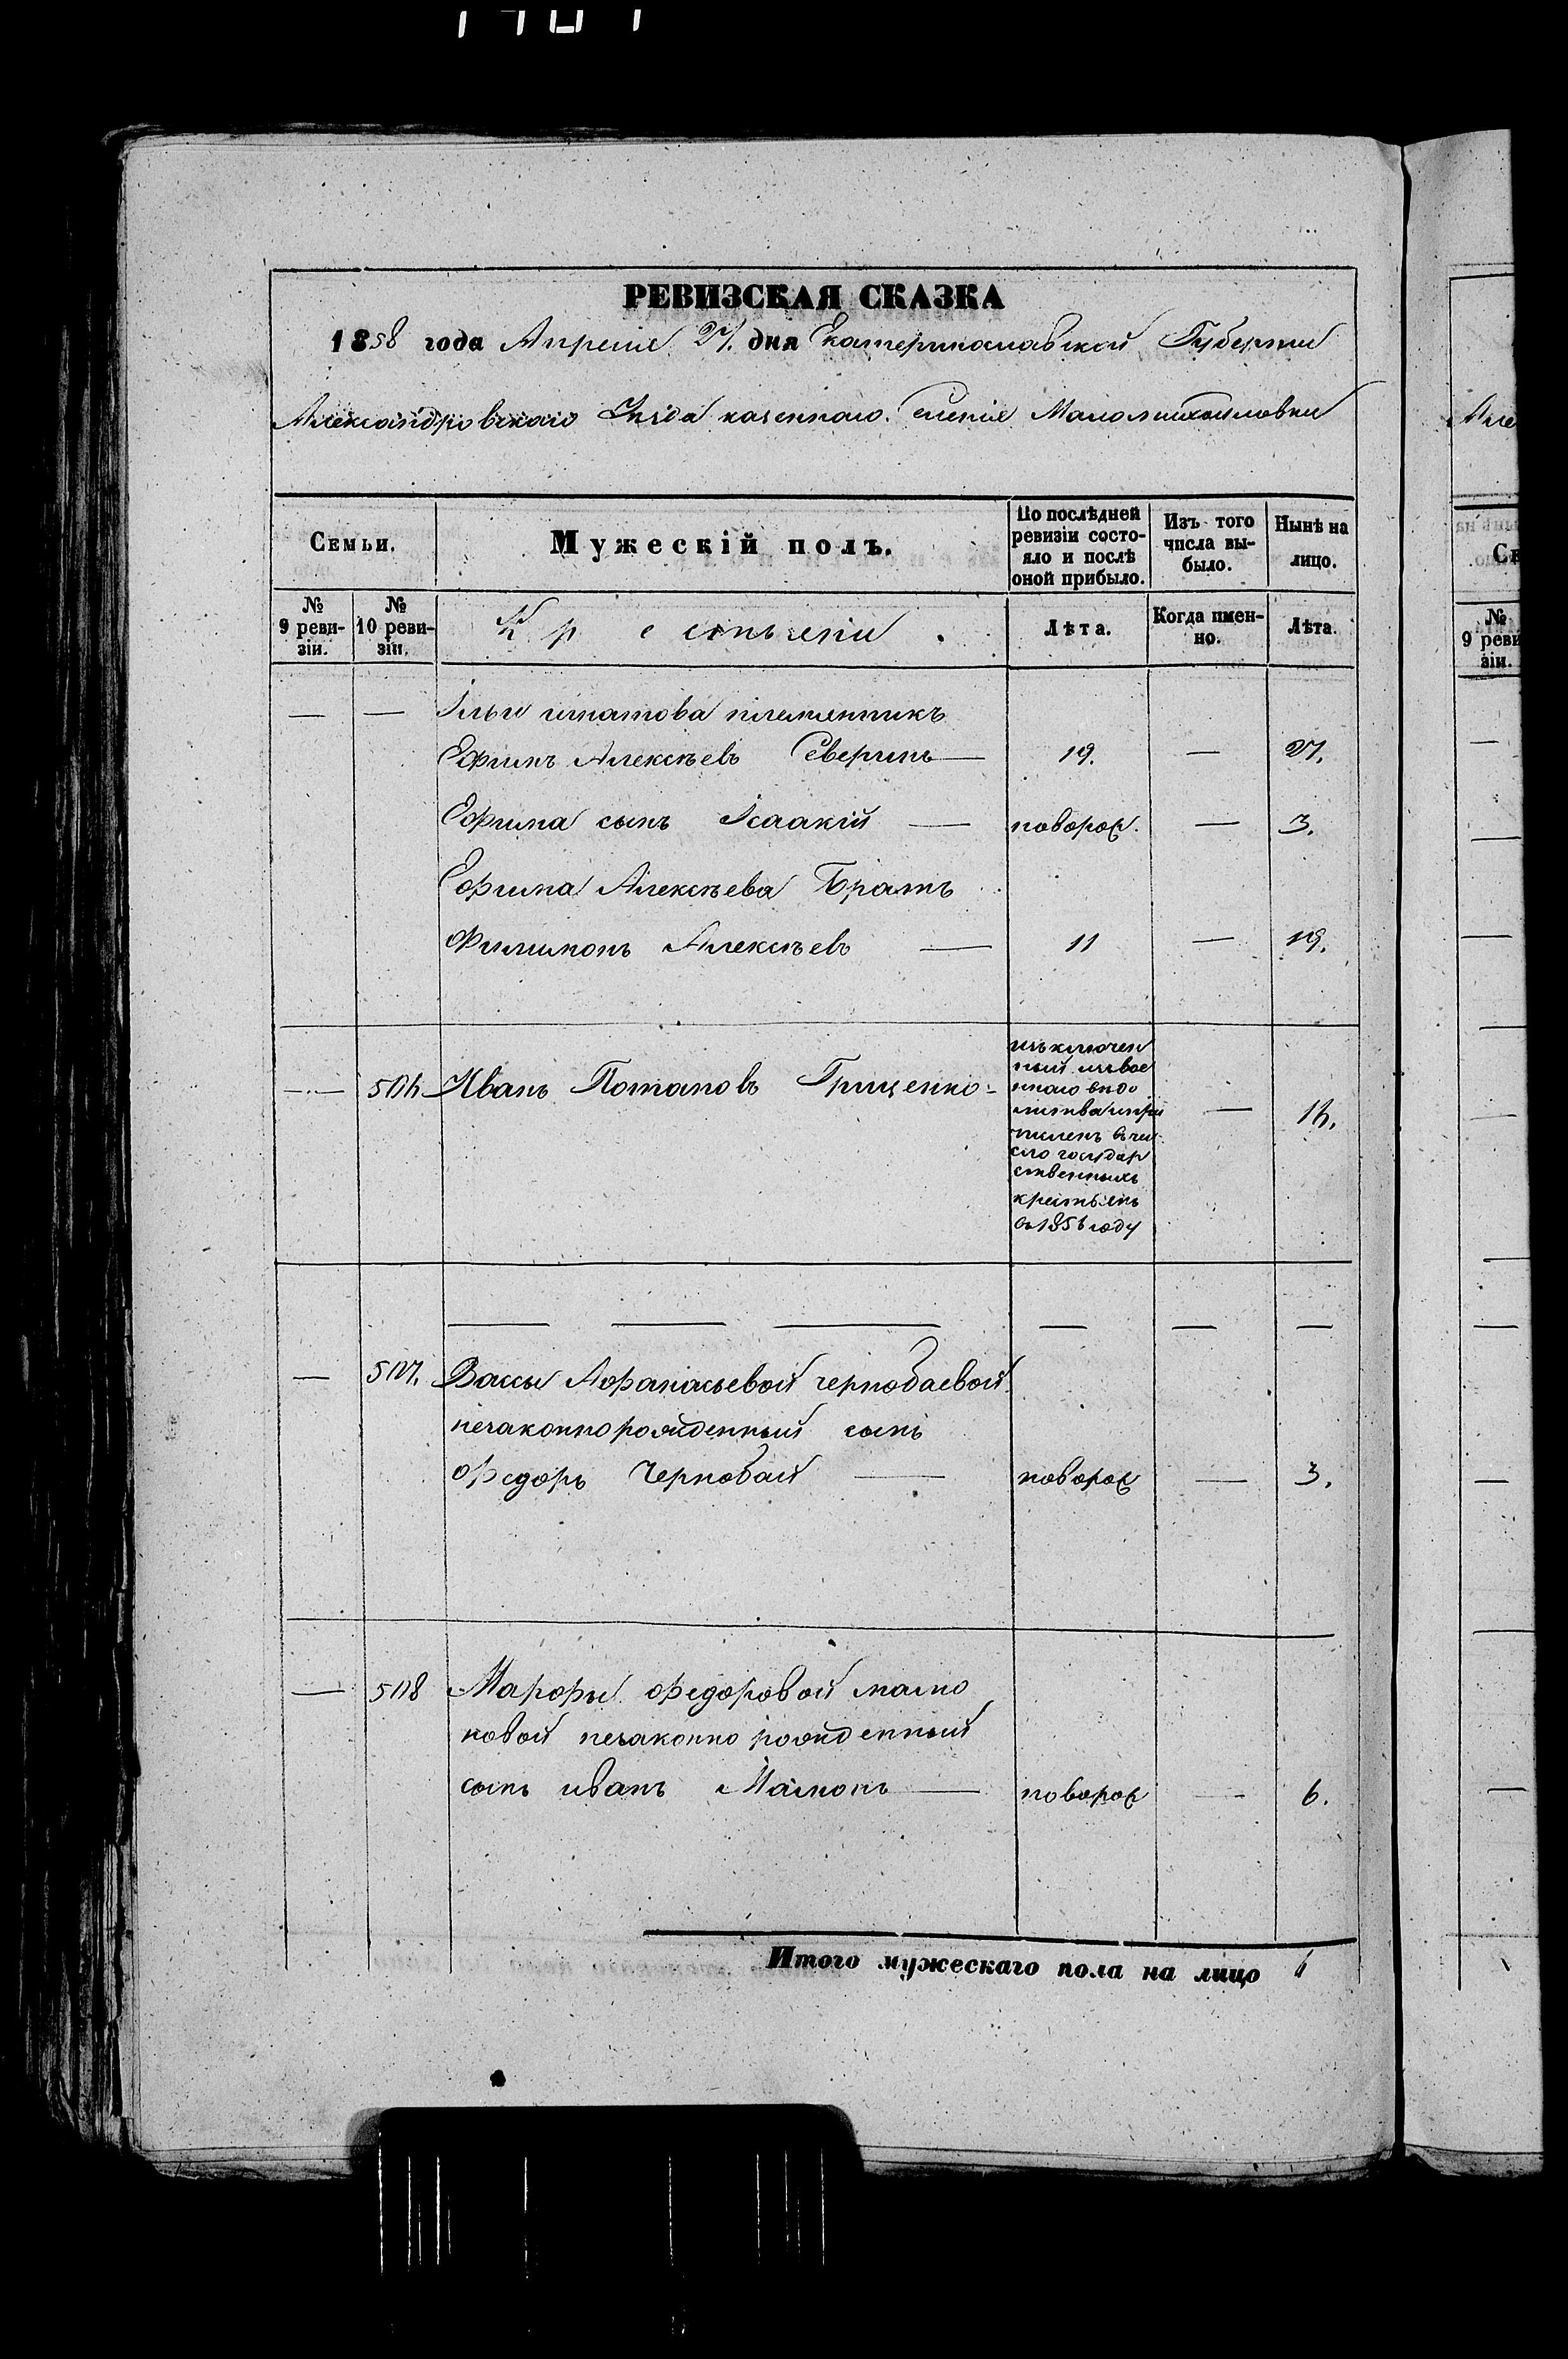 РЕВИЗСКАЯ СКАЗКА
1858 года Апреля 27. дня Екатеринославской Губернии
Александровскаго Уѣзда казеннаго селенія Маломихайловки
Семьи.
Мужескій полъ.
По послѣдней ревизіи состо-
яло и послѣ
оной прибыло.
Изъ того
числа вы-
было.
Нынѣ на
лицо.
№
9 реви-
зіи.
№
10 реви-
зіи.
Крестьяне.
Лѣта.
Когда имен-
но.
Лѣта.
— — Ильи игнатова племянникъ
Ефимъ Алексѣевъ Северинъ — 19. — 27.
Ефима сынъ Ісаакій — новорож. — 3.
Ефима Алексѣева Братъ
Филимонъ Алексѣевъ — 11 — 19.
— 506 Иванъ Потаповъ Грищенко — 16.
изключен
ный изъвое
ннаго вѣдо
мства и при
численъ въ чи
сло государ
ственныхъ
крестьянъ
въ 1856 году
— — — — — —
— 507. Вассы Афанасьевой чернобаевой
незаконнорожденный сынъ
Федоръ Чернобай — новорож — 3.
— 508 Марфы Федоровой мамо
новой незаконно рожденный
сынъ иванъ Мамонъ — новорож — 6.
Итого мужескаго пола на лицо 6
№
9 реви
зіи.